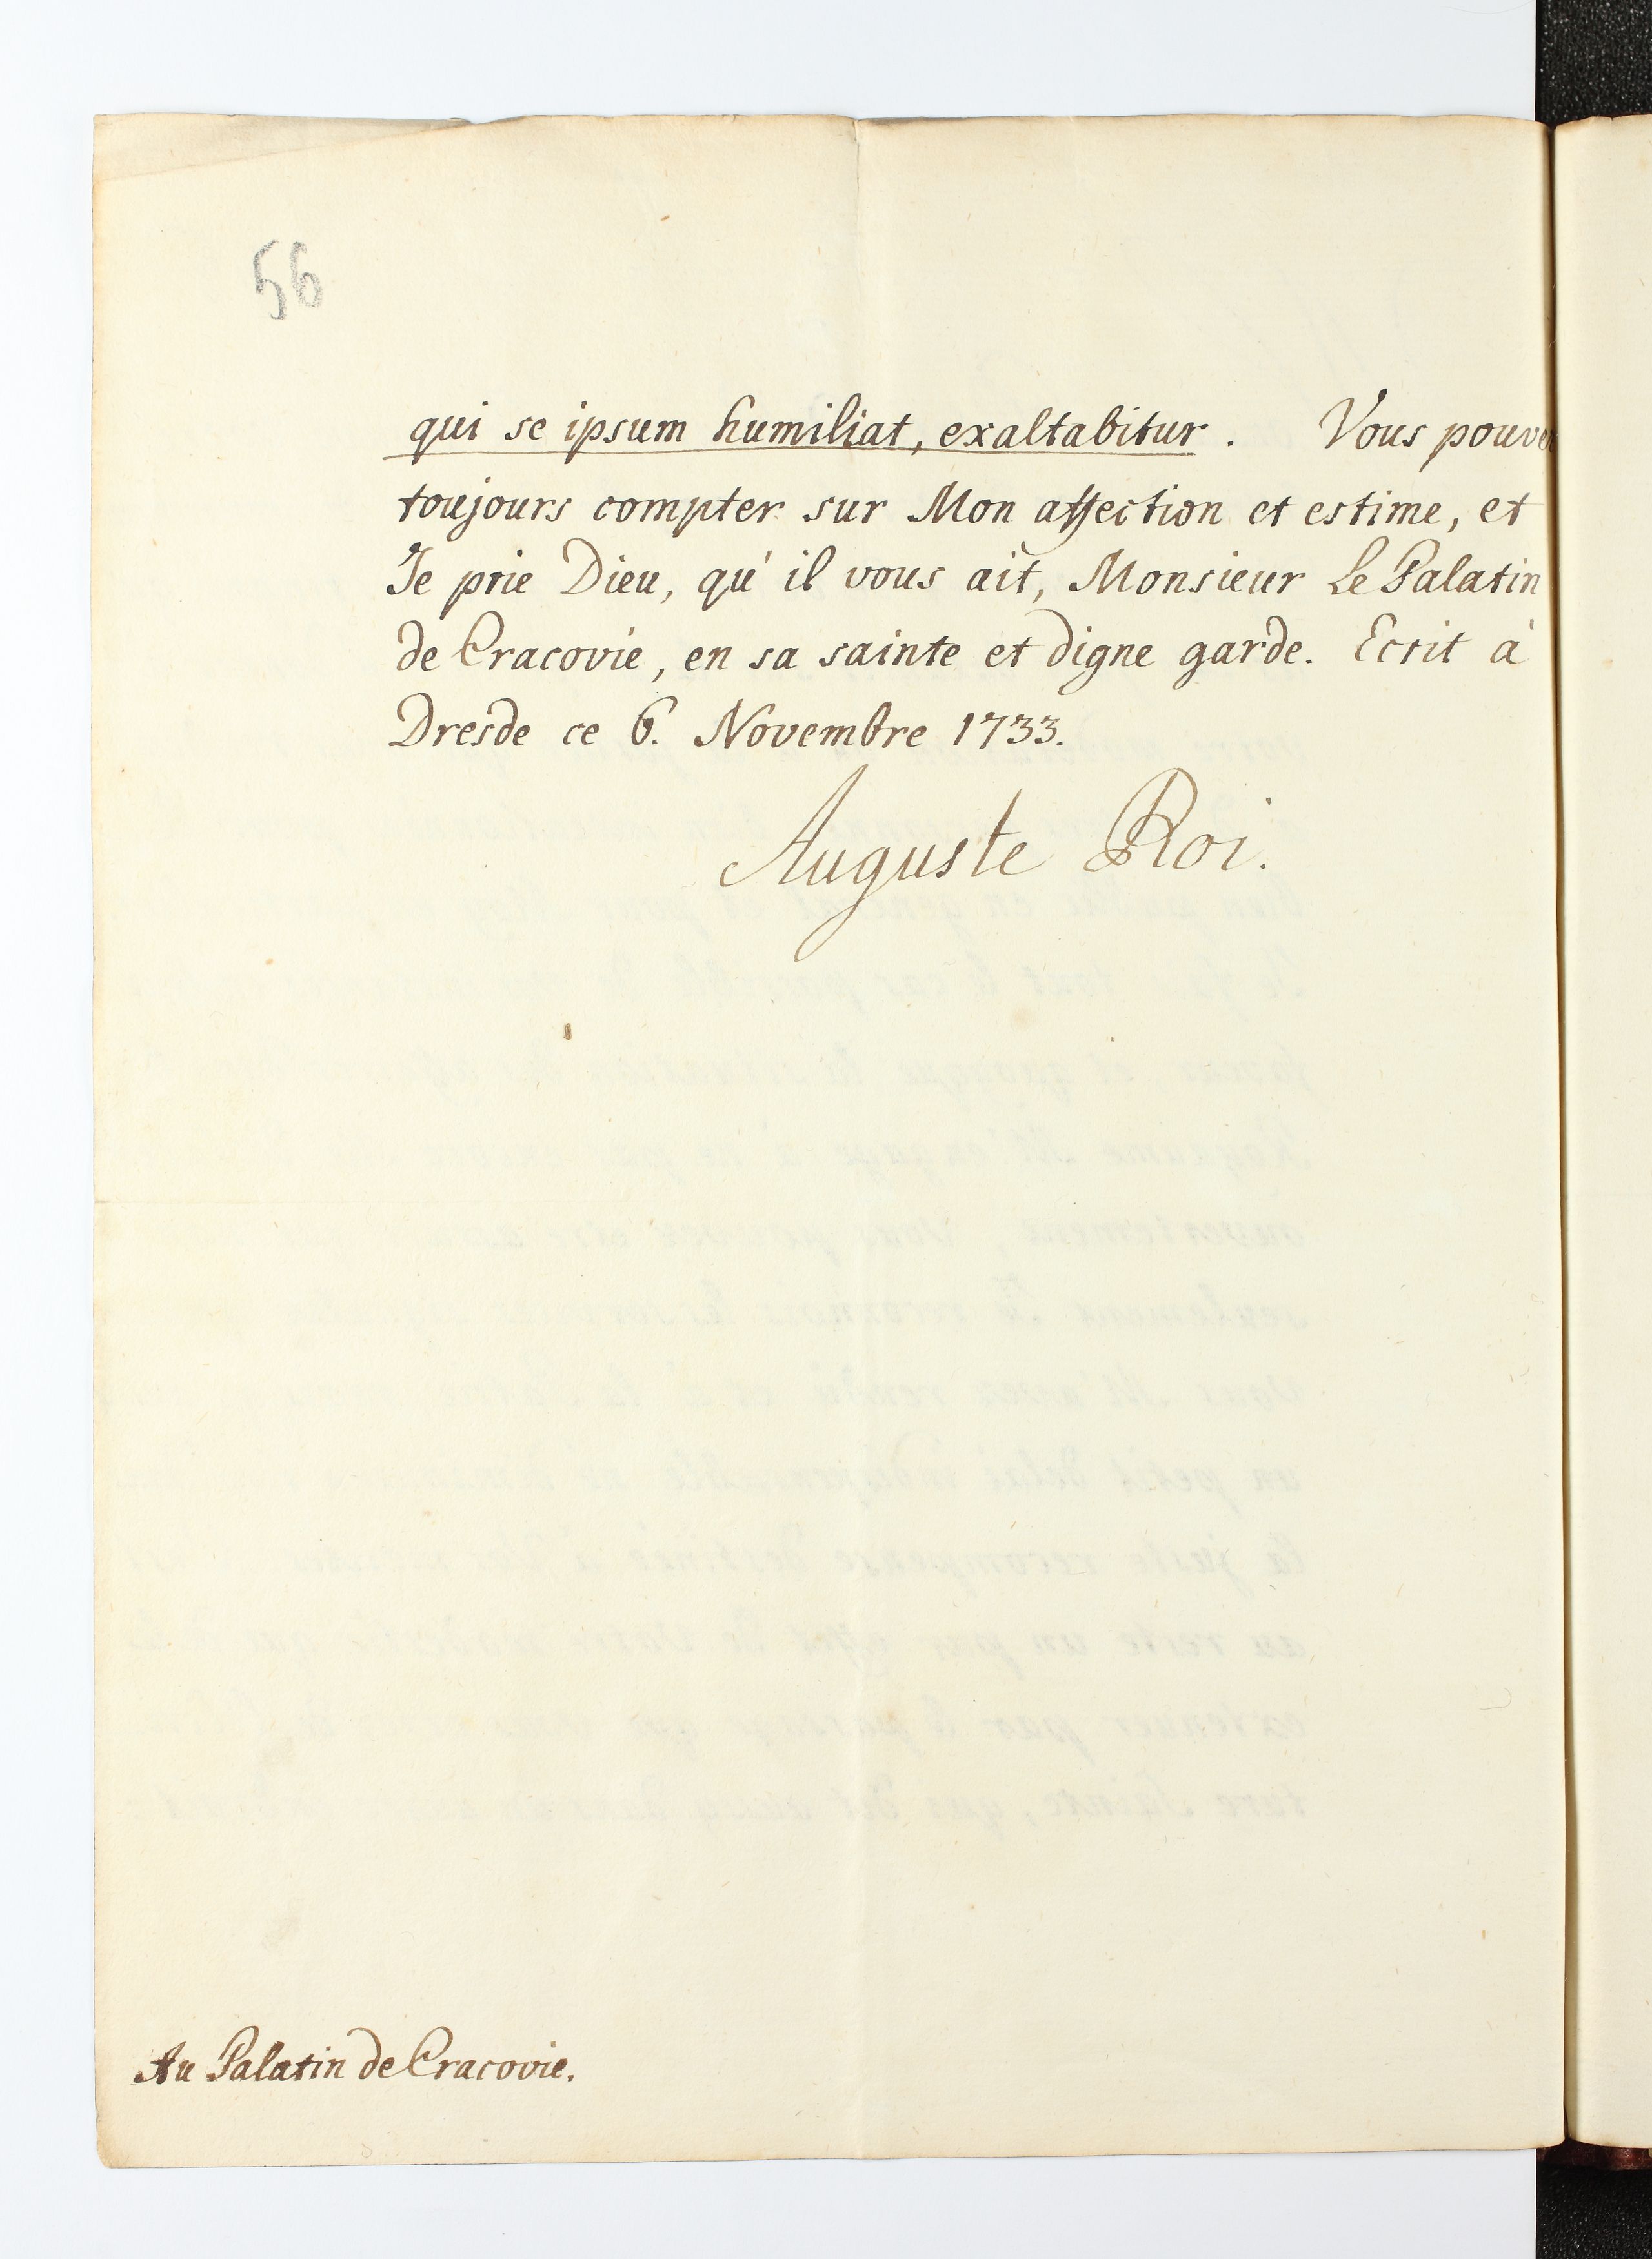 56
qui se ipsum humiliat, exaltabitur. Vous pouvez
toujours compter sur Mon affection et estime, et
Je prie Dieu, qu'il vous ait, Monsieur Le Palatin
de Cracovie, en sa sainte et digne garde. Ecrit à
Dresde ce 6. Novembre 1733.
Auguste Roi.
Au Palatin de Cracovie.